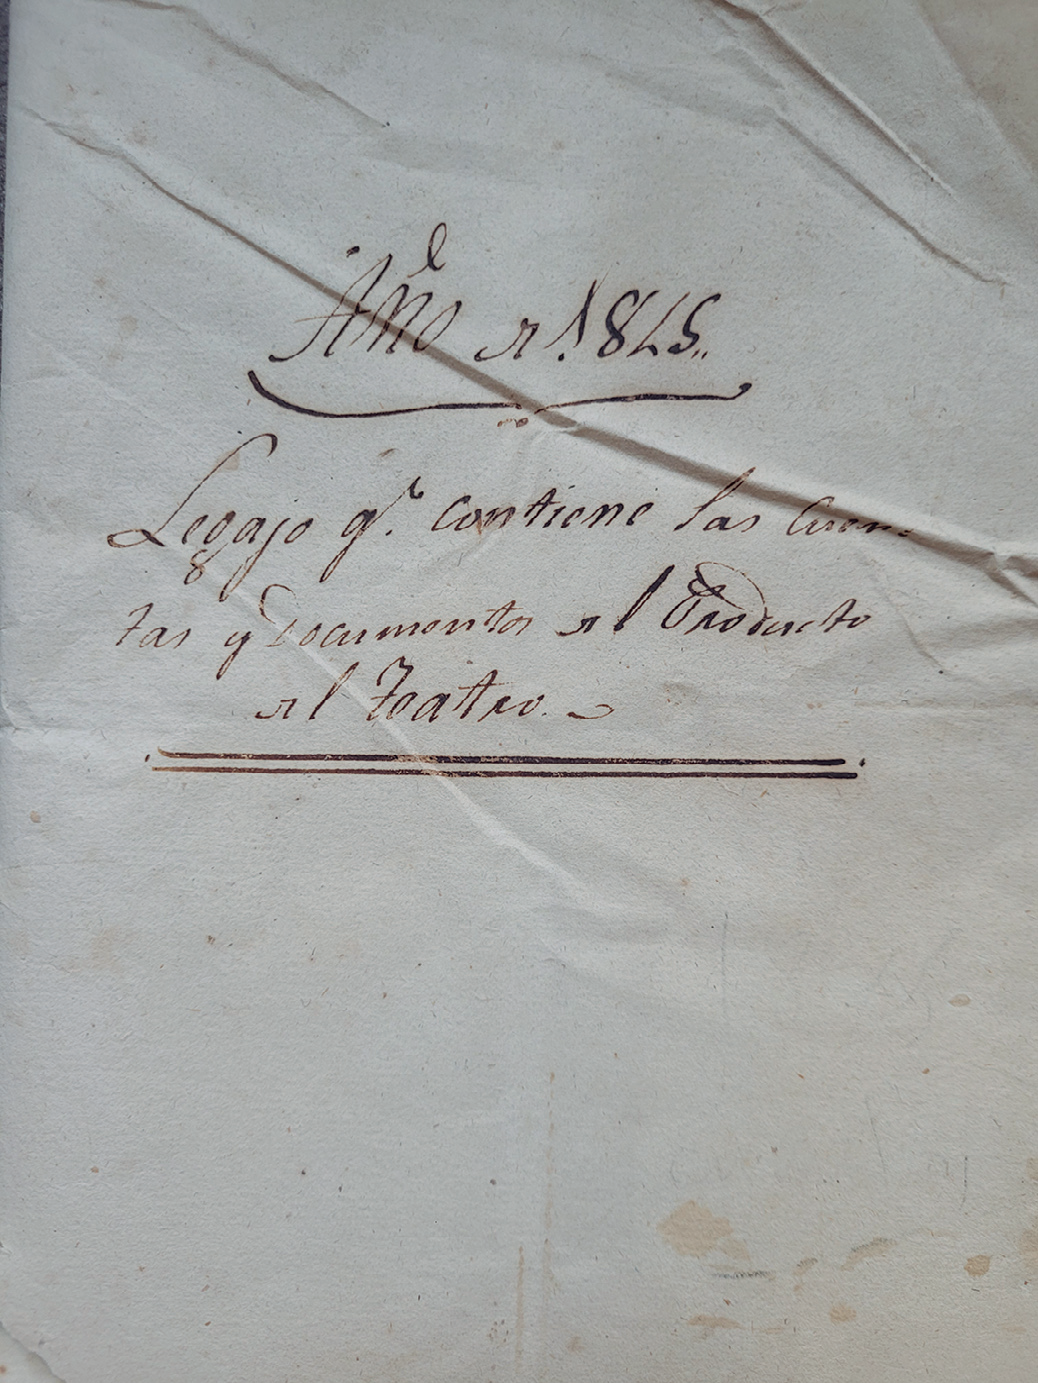 Año de 1845,,
Legajo qe. contiene las Cuen-
tas y Documentos del Producto
del Teatro.